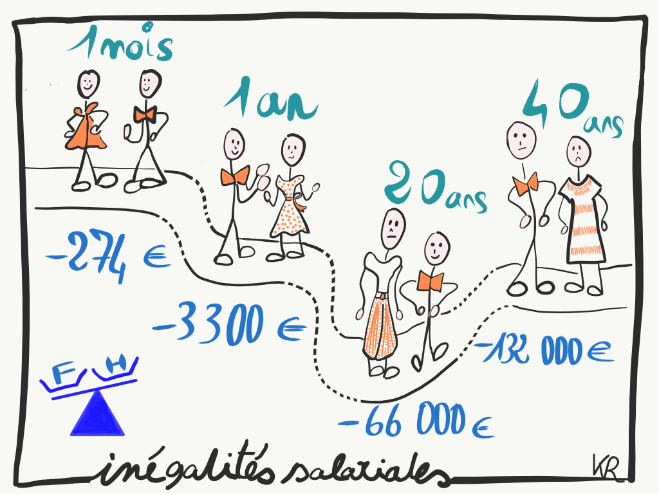 1 mois
1 an
20 ans
40 ans
-274 €
-3300 €
-66 000 €
-132 000 €
F H
inégalités salariales
KR